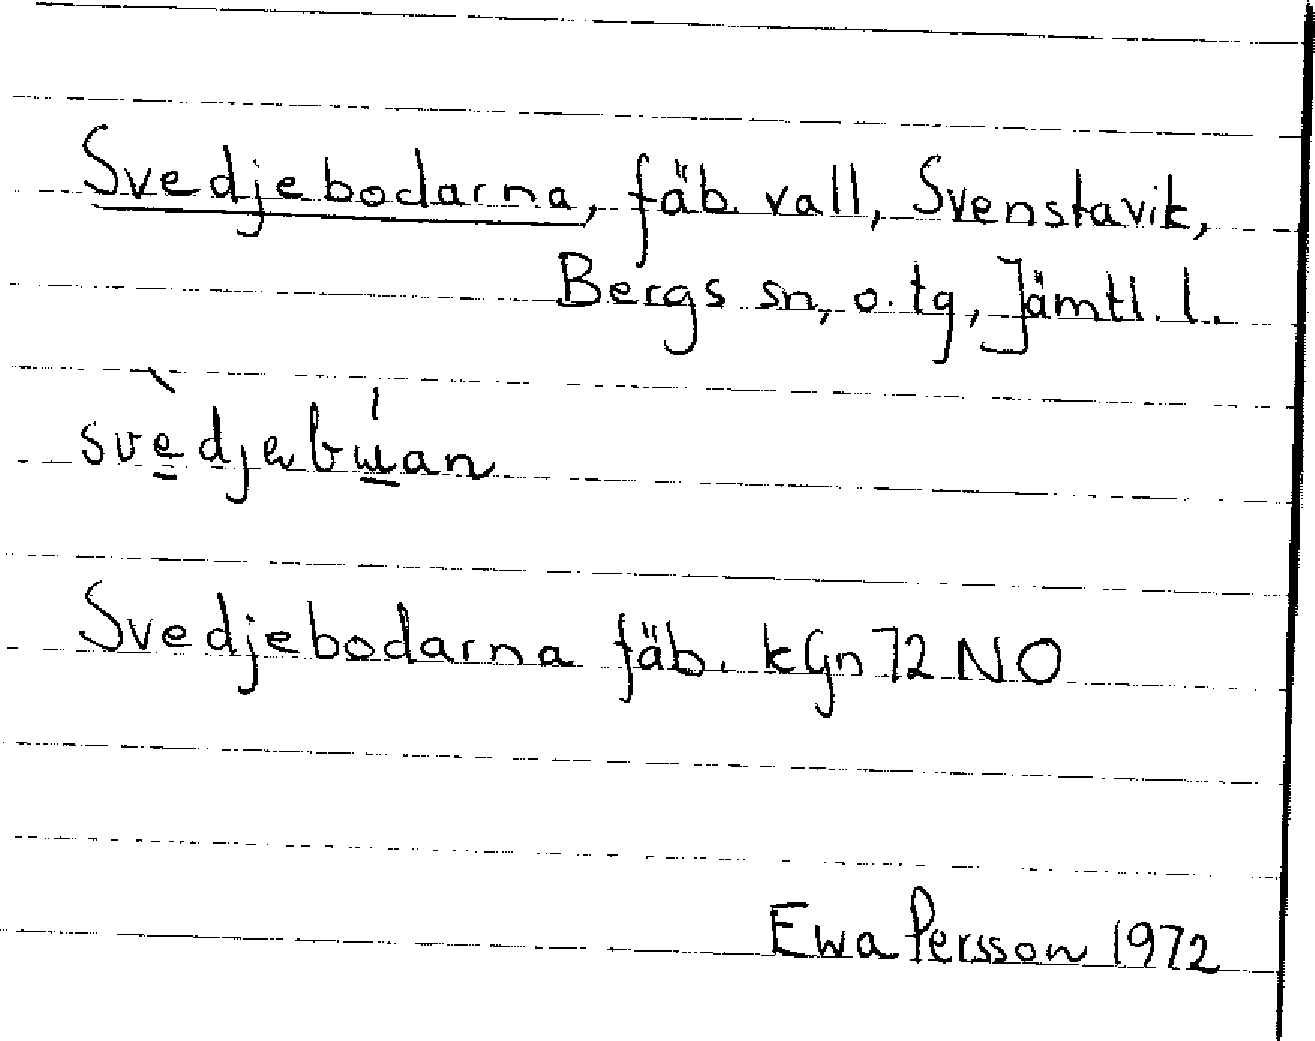 Svedjebodarna, fäb. vall, Svenstavik,
Bergs sn, o. tg, Jämtl. l.
svè̱djebu̱̍an
Svedjebodarna fäb. kGn 72 NO
Ewa Persson 1972